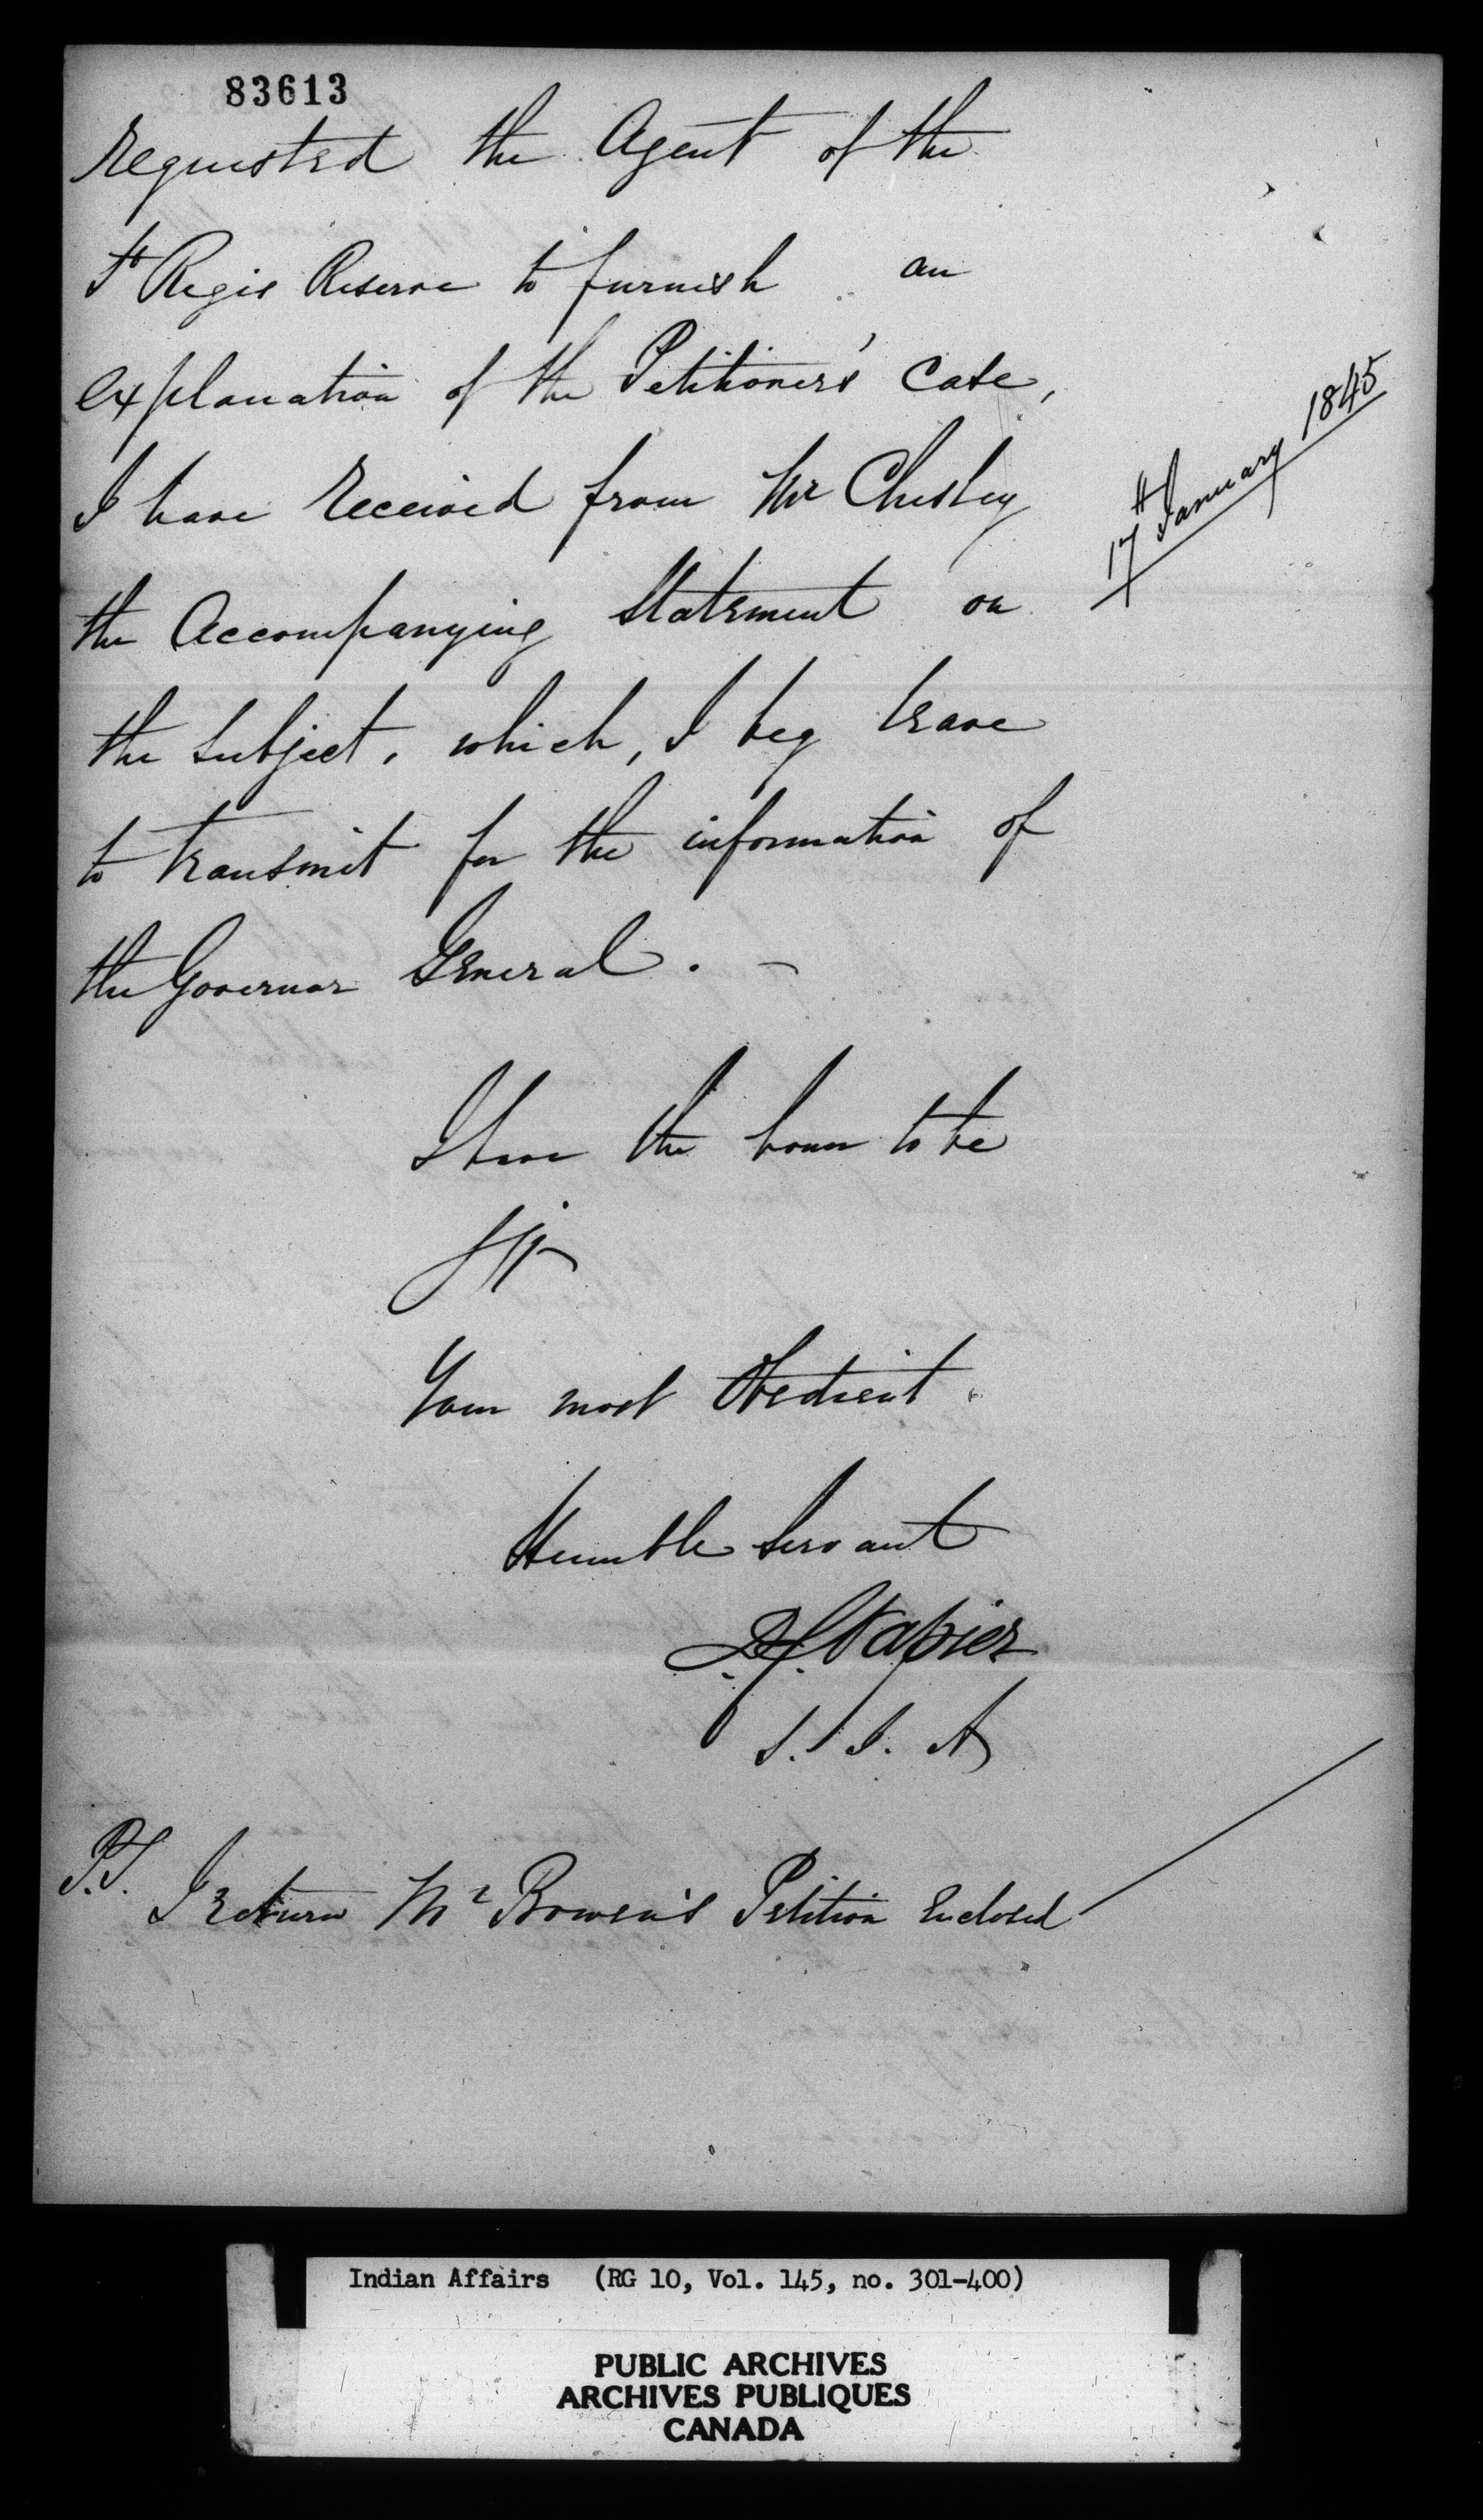 83613
requested the Agent of the
St Regis Reserve to furnish an
explanation of the Petitioner's case,
I have received from Mr Chesley
17th January 1845
the Accompanying Statement on
the subject, which, I beg leave
to transmit for the information of
the Governor General. -
I have the honor to be
Sir
Your most Obedient
Humble Servant
D.C. Napier
S. I. A
P.S. I return Mr Bowen's Petition Enclosed
Indian Affairs (RG 10, Vol. 145, no. 301-400)
PUBLIC ARCHIVES
ARCHIVES PUBLIQUES
CANADA